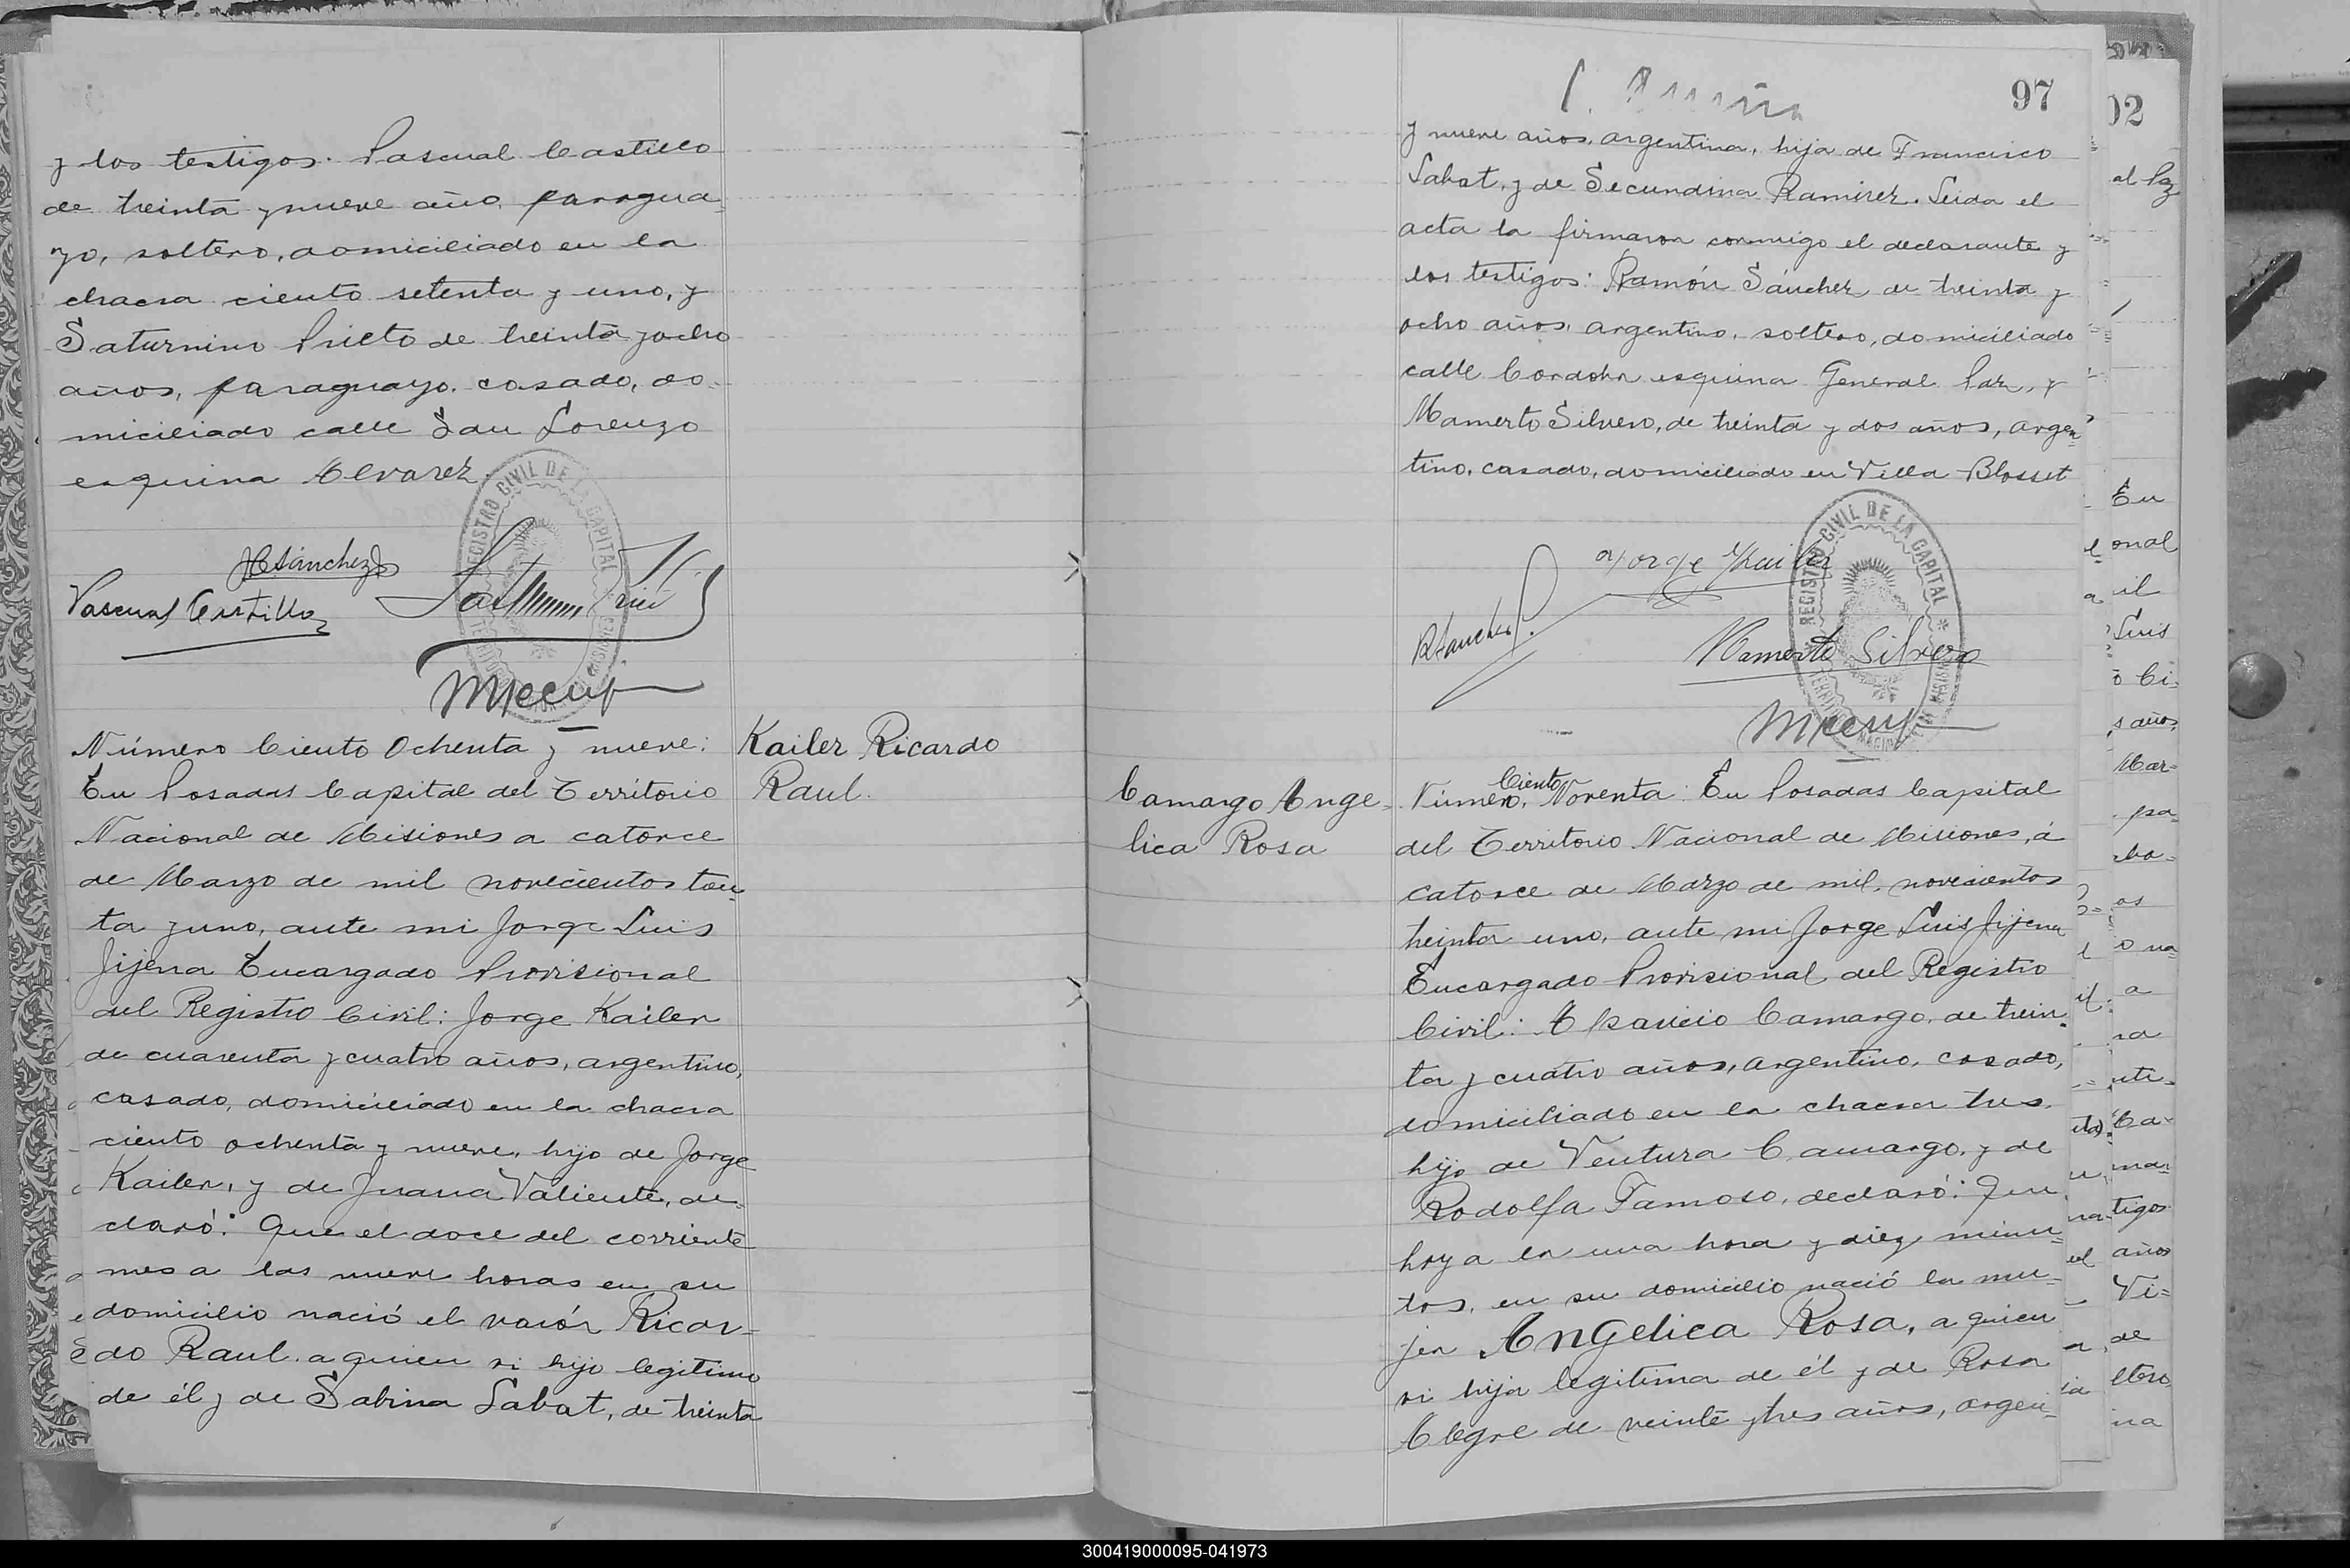 y los testigos. Pascual Castillo
de treinta y nueve año, paragua-
yo, soltero, domiciliado en la
chacra ciento setenta y uno, y
Saturnino Prieto de treinta y ocho
años, paraguayo, casado, do-
miciliado calle San Lorenzo
esquina Alvarez.
REGISTRO CIVIL DE LA CAPITAL
HSánchez
Pascual Castillo
Número Ciento Ochenta y nueve:
En Posadas Capital del Territorio
Nacional de Misiones a catorce
de Marzo de mil novecientos trein-
ta y uno, ante mi Jorge Luis
Jijena Encargado Provisional
del Registro Civil: Jorge Kailer
de cuarenta y cuatro años, argentino,
casado, domiciliado en la chacra
ciento ochenta y nueve, hijo de Jorge
Kailer, y de Juana Valiente, de-
claró: Que el doce del corriente
mes a las nueve horas en su
domicilio nació el varón Ricar-
do Raul a quien vi hijo legitimo
de él y de Sabina Sabat, de treinta
Kailer Ricardo
Raul.
97
y nueve años, argentina, hija de Francisco
Sabat, y de Secundina Ramirez. Leida el
acta la firmaron conmigo el declarante y
los testigos: Ramón Sánchez de treinta y
ocho años, argentino, soltero, domiciliado
calle Cordoba esquina General Paz, y
Mamerto Silvero, de treinta y dos años, argen-
tino, casado, domiciliado en Villa Blosset
REGISTRO CIVIL DE LA CAPITAL
Jorge Kailer
RSanchez
Mamerto Silvero
Camargo Ange-
lica Rosa
Número, Ciento Noventa: En Posadas Capital
del Territorio Nacional de Misiones, á
catorce de Marzo de mil novecientos
treinta y uno, ante mi Jorge Luis Jijena
Encargado Provisional del Registro
Civil: Aparicio Camargo, de trein-
ta y cuatro años, argentino, casado,
domiciliado en la chacra tres,
hijo de Ventura Camargo, y de
Rodolfa Famoso, declaró: Que
hoy a la una hora y diez minu-
tos, en su domicilio nació la mu-
jer Angelica Rosa, a quien
vi hija legitima de él y de Rosa
Alegre de veinte y tres años, argen-
02
En
onal
Luis
años,
Mar-
pa-
tigos
años
Vi-
de
ltero,
na
300419000095-041973